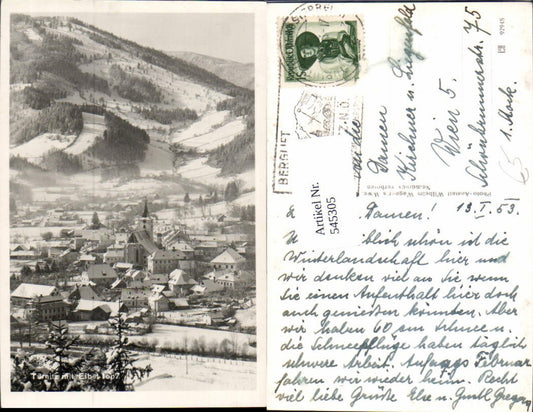 Türnitz mit Eibel 1007
92945
REPUBLIK ÖSTERREICH
BERGLUFT
N.Ö.
An die
Damen
Kirchner u. Lugsfeld
Wien 5.
Schönbrunnerstr. 75
1. Stock.
Photo-Anstalt Wilhelm Wagner's Wwe.
Nachdruck verboten
Artikel Nr.
545305
13.I.53.
Damen.
blich schön ist die
Winterlandschaft hier und
wir denken viel an Sie wenn
Sie einen Aufenthalt hier doch
auch geniessen könnten. Aber
wir haben 60 cm Schnee u.
die Schneepflüge haben täglich
schwere Arbeit. Anfangs Februar
fahren wir wieder heim. Recht
viel liebe Grüße Else u. Gustl Gregory